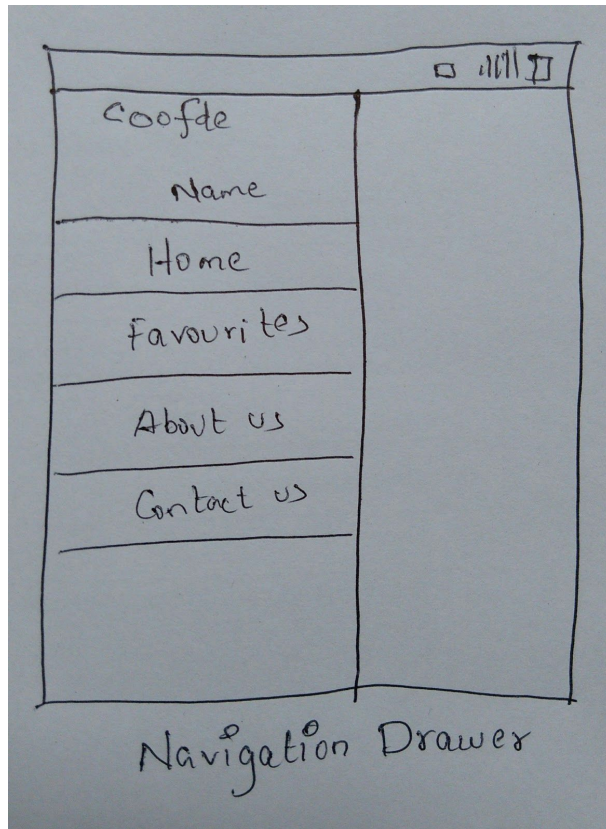 Coofde
Name
Home
Favourites
About us
Contact us
Navigation Drawer